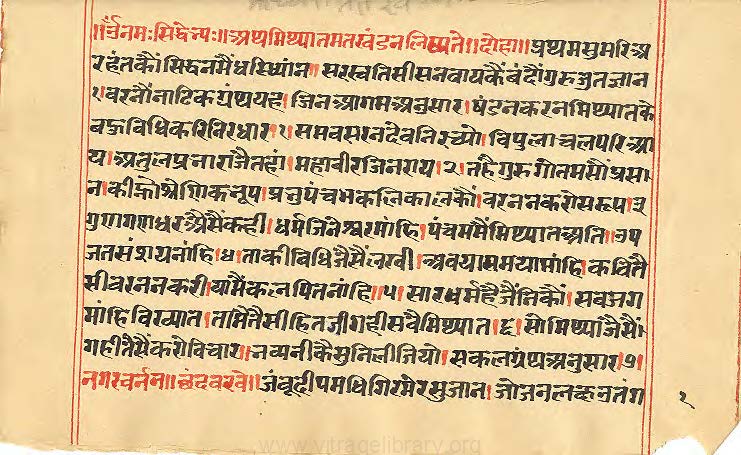 ॥ र्द॥नमःसिद्धेभ्यः॥अथमिथ्यातमतखंडनलिख्यते॥दोहा॥प्रथमसुमरिअ
रहंतकौंसिद्धनमैंधरिध्यांन॥सरस्वतिसीसनवायकैंवंदौंगुरुजुतज्ञान
१।वरनौंनाटिकग्रंथयह।जिनआगमअनुसार।षंडनकरनमिथ्यातके
वहुविधिकरिविस्धार।१।समवसरनदेवनिरच्यो।विपुलाचलपरिआ
य।अतुलप्रभाराजैतहां।महावीरजिनराय।२।तहैगुरुगोतमसौंप्रसा
न।कीन्हौश्रेणिकनूप।प्रभुपंचमकलिकालकौं।वरननकरोसरूप।३
गुणगणधरअैसैंकही।धर्मजिनेश्वरमांहि।पंचममैंमिथ्यातअति।उप
जतसंशयनांहि।४।ताकीविधिजैसैंलखी।अवयासमयामांहि।कवितै
सीवरननकरी।यामैंकलपितनांहि।५।सारधर्महैजैंनिकौं।सवजग
मांहिविख्यात।तामैंजैसीहितजीगहीसवैमिथ्यात।६।सोमिथ्याजैसैं।
गहीतैसैंकरोविचार।भव्यनीकैंसुनिलीजियो।सकलग्रंथअनुसार।७।
नगरवर्नन॥छंदवरवे॥जंवूदीपमधिगिरमेरसुजान।जोजनलक्षउतंग
१
www.vitragelibrary.org